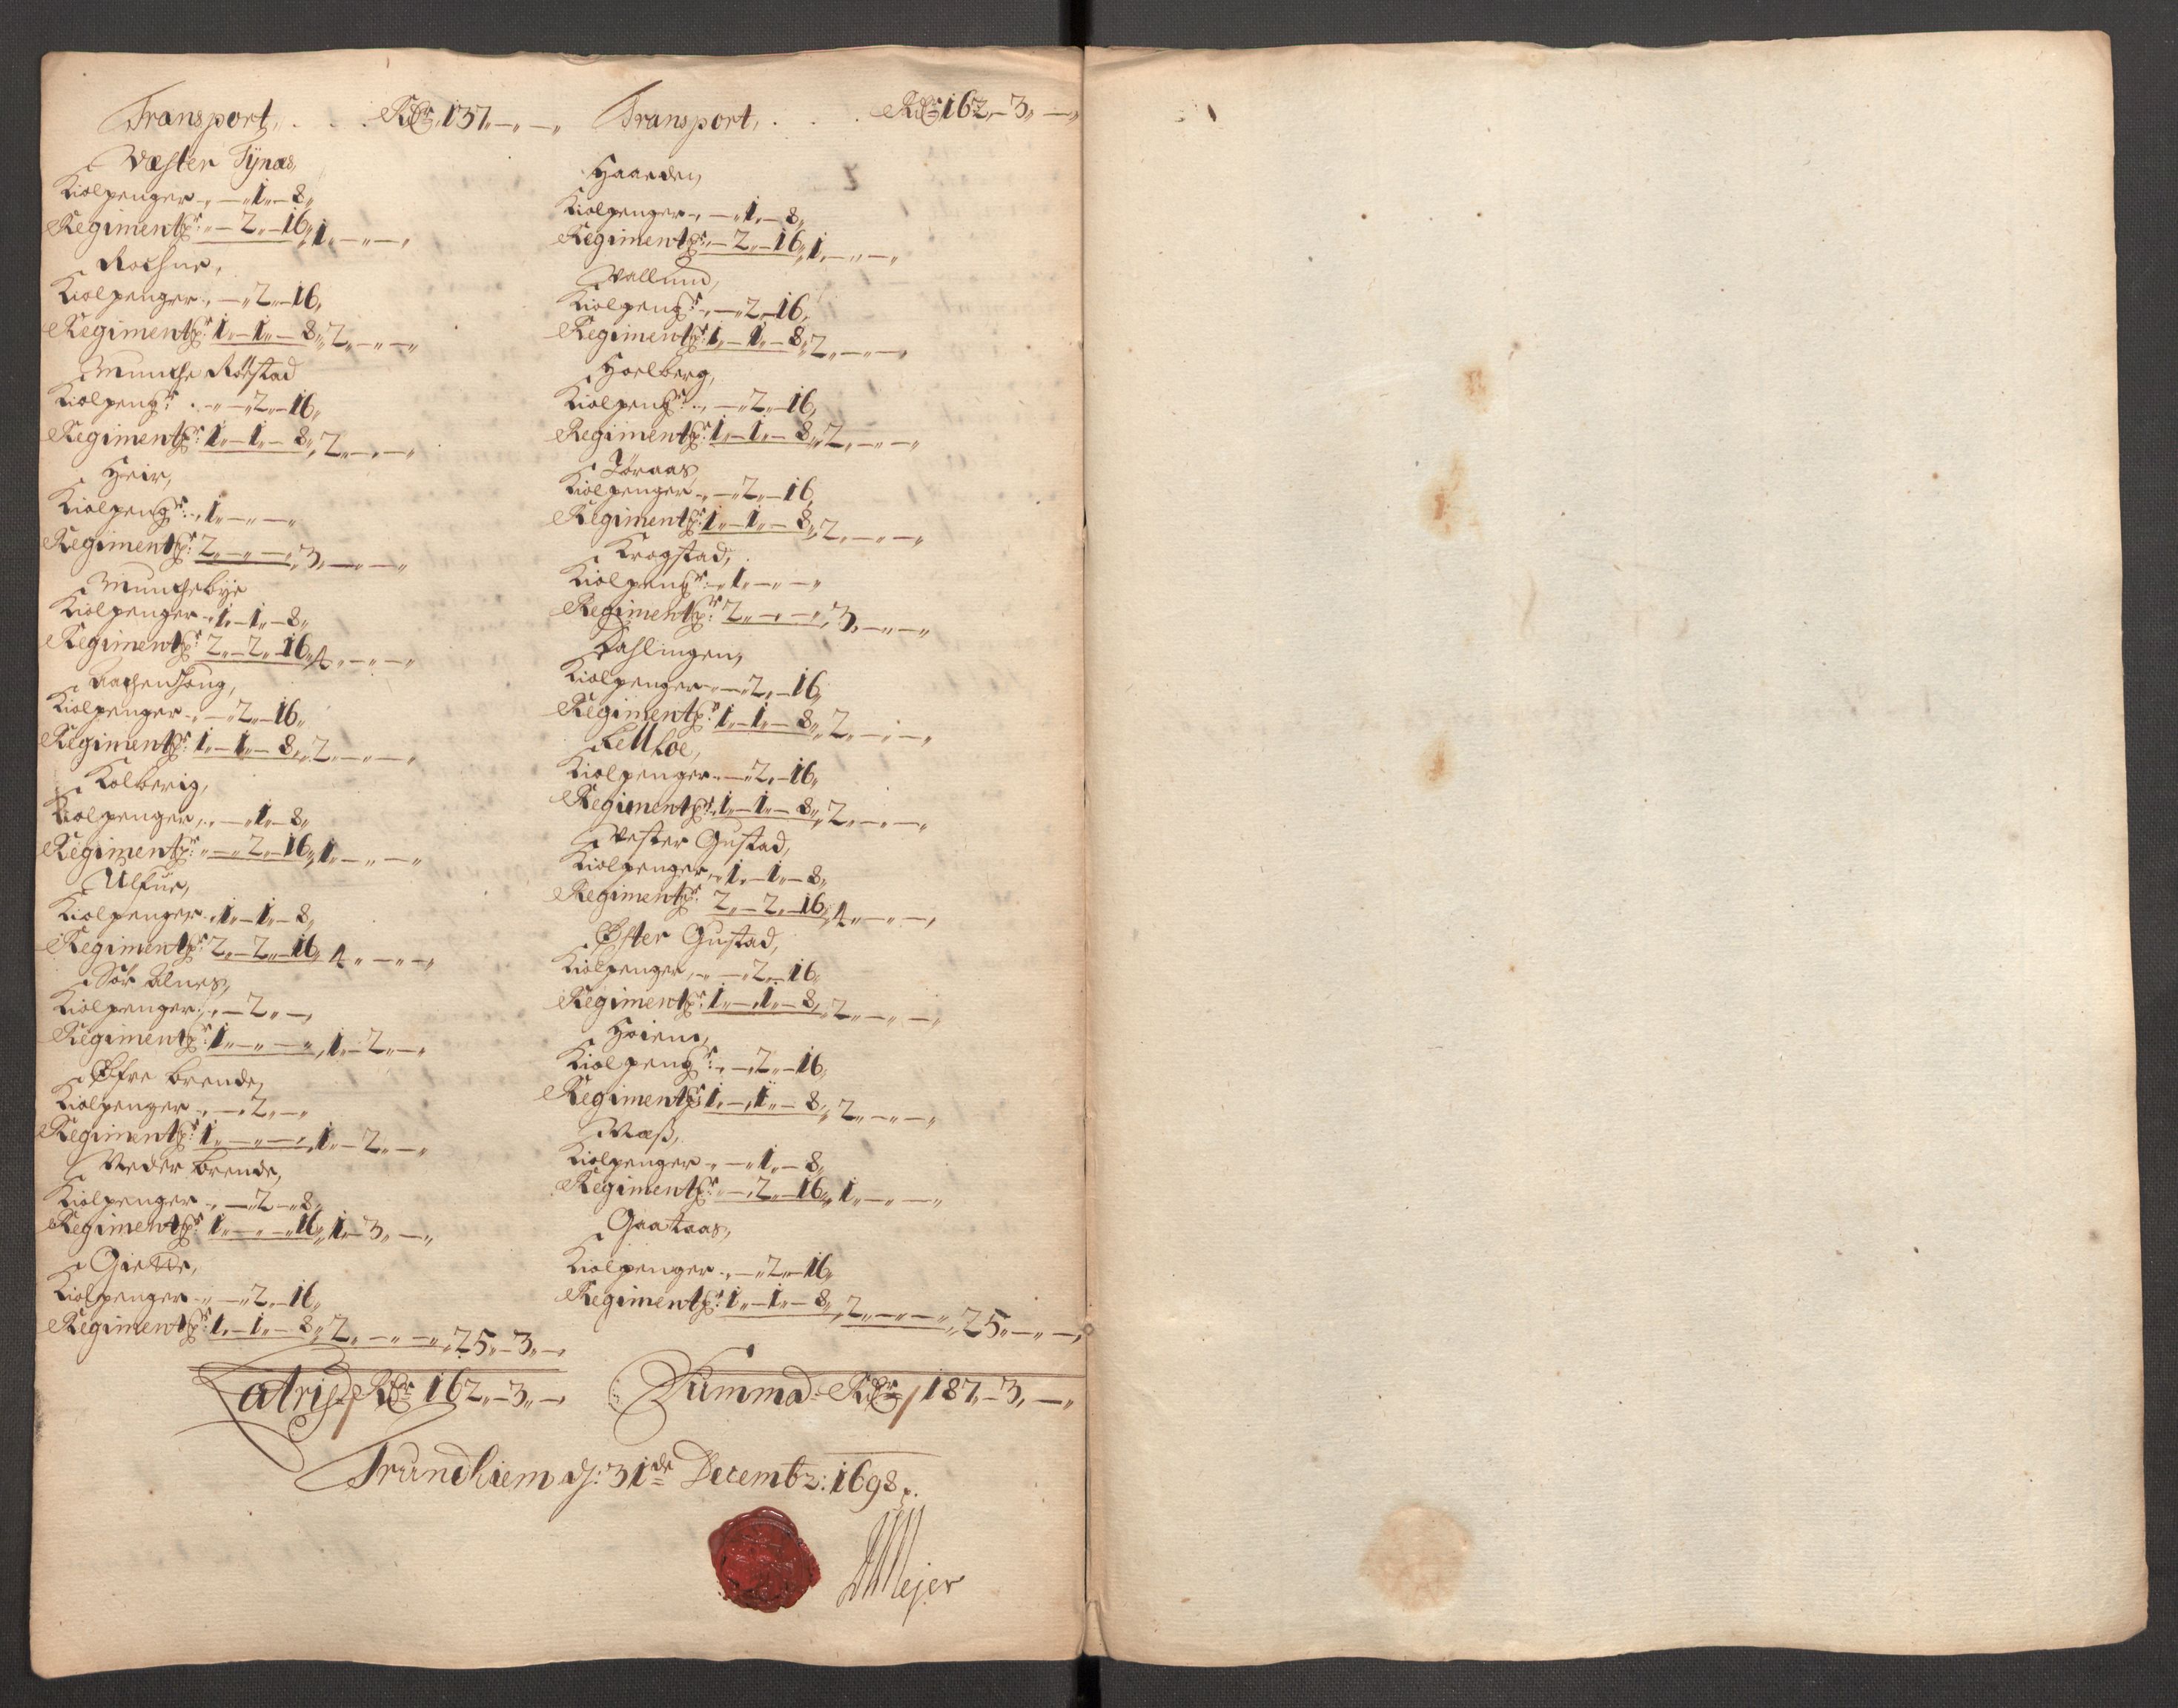 Transport, . . . Rdr 137,,—,,—,,
Wæster Tÿnæs,
Kiolpenger ,,—,,1,,—8,,
Regimentpr: ,,—2,,—16,,1,,—,,—,,
Rochne,
Kiolpenger ,,—,,2,,—16,,
Regimentpr: 1,,—1,,—8,,2,,—,,—,,
Munche Rörstad
Kiolpengr: ,,—,,2,,—16,,
Regimentpr: 1,,—1,,—8,,2,,—,,—,,
Heir,
Kiolpengr: ,,1,,—,,—,,
Regimentpr: 2,,—,,—,,3,,—,,—,,
Munchebÿe
Kiolpenger ,,1,,—1,,—8,,
Regimentpr: 2,,—2,,16,,4,,—,,—,,
Kiolpenger ,,—,,2,,—16,,
Regimentpr: 1,,—1,,—8,,2,,—,,—,,
Kolberig,
Kiolpenger ,,—,,1,,—8,,
Regimentpr: ,,—,,2,,—16,,1,,—,,—,,
Ulfue,
Kiolpenger ,,1,,—1,,—8,,
Regimentpr: 2,,—2,,—16,,4,,—,,—,,
Sör Alnes,
Kiolpenger ,,—2,,—,,
Regimentpr: 1,,—,,—,,1,,—2,,—,,
Øfre brende,
Kiolpenger ,,—,,2,,—,,
Regimentpr: 1,,—,,—,,1,,—2,,—,,
Neder brende,
Kiolpenger ,,—,,2,,—8,,
Regimentpr: 1,,—,,—16,,1,,—3,,—,,
Gietde,
Kiolpenger ,,—,,2,,—16,,
Regimentpr: 1,,—1,,—8,,2,,—,,—,,25,,—3,,—,,
Latris Rdr 162,,—3,,—,,
Transport, . . . Rdr 162,,—3,,—,,
Haarden,
Kiolpenger ,,—,,1,,—8,,
Regimentpr: ,,—2,,—16,,1,,—,,—,,
Wallund,
Kiolpengr: ,,—,,2,,—16,,
Regimentpr: 1,,—1,,—8,,2,,—,,—,,
Hoelberg,
Kiolpengr: ,,—,,2,,—16,,
Regimentpr: 1,,—1,,—8,,2,,—,,—,,
Töraas,
Kiolpenger ,,—,,2,,—16,,
Regimentpr: 1,,—1,,—8,,2,,—,,—,,
Krogstad,
Kiolpengr: ,,1,,—,,—,,
Regimentpr: 2,,—,,—,,3,,—,,—,,
Dahlingen,
Kiolpenger ,,—,,2,,—16,,
Regimentpr: 1,,—1,,—8,,2,,—,,—,,
Kiolpenger ,,—,,2,,—16,,
Regimentpr: 1,,—1,,—8,,2,,—,,—,,
Wester Gustad,
Kiolpenger ,,1,,—1,,—8,,
Regimentpr: 2,,—2,,—16,,4,,—,,—,,
Øster Gustad,
Kiolpenger ,,—,,2,,—16,,
Regimentpr: 1,,—,,1,,—8,,2,,—,,—,,
Hoiem,
Kiolpengr: ,,—,,2,,—16,,
Regimentpr: 1,,—,,1,,—8,,2,,—,,—,,
Wæß,
Kiolpenger ,,—,,1,,—8,,
Regimentpr: ,,—,,2,,—16,,1,,—,,—,,
Gaataas,
Kiolpenger ,,—,,2,,—16,,
Regimentpr: 1,,—1,,—8,,2,,—,,—,,25,,—,,—,,
Summa Rdr 187,,—3,,—,,
Trundhiem d: 31de Decembr: 1698,,
Mejer